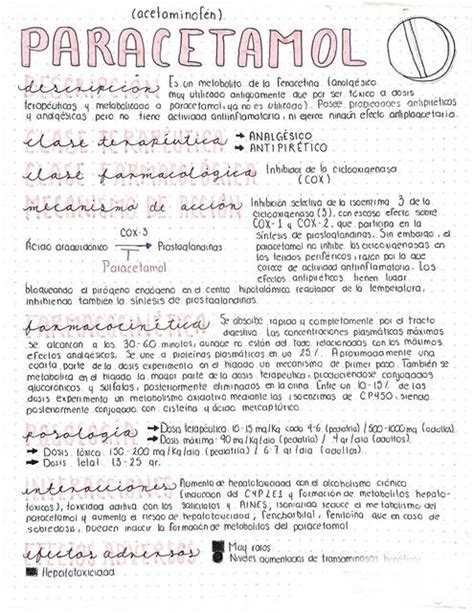 (acetaminofén).
PARACETAMOL
descripción Es un metabolito de la fenacetina (analgésico
muy utilizado antiguamente que por ser tóxico a dosis
terapéuticas y metabolizado a paracetamol, ya no es utilizado). Posee propiedades antipiréticas
y analgésicas pero no tiene actividad antiinflamatoria, ni ejerce ningún efecto antiplaquetario.
clase terapéutica → ANALGÉSICO
→ ANTIPIRÉTICO
clase farmacológica Inhibidor de la ciclooxigenasa
(COX)
mecanismo de acción Inhibición selectiva de la isoenzima 3 de la
ciclooxigenasa (3), con escaso efecto sobre
COX-1 y COX-2, que participa en la
síntesis de prostaglandinas. Sin embargo, el
paracetamol no inhibe las ciclooxigenasas en
los tejidos periféricos, razón por la que
carece de actividad antiinflamatoria. Los
efectos antipiréticos tienen lugar
COX-3
Ácido araquidónico → Prostaglandinas
Paracetamol
bloqueando el pirógeno endógeno en el centro hipotalámico regulador de la temperatura,
inhibiendo también la síntesis de prostaglandinas.
farmacocinética Se absorbe rápida y completamente por el tracto
digestivo. Las concentraciones plasmáticas máximas
se alcanzan a los 30-60 minutos, aunque no están del todo relacionadas con los máximos
efectos analgésicos. Se une a proteínas plasmáticas en un 25%. Aproximadamente una
cuarta parte de la dosis experimenta en el hígado un mecanismo de primer paso. También se
metaboliza en el hígado la mayor parte de la dosis terapéutica, produciéndose conjugados
glucorónicos y sulfatos, posteriormente eliminados en la orina. Entre un 10-15% de las
dosis experimenta un metabolismo oxidativo mediante las isoenzimas de CP450, siendo
posteriormente conjugado con cisteína y ácido mercaptúrico.
posología → Dosis terapéutica: 10-15 mg/kg cada 4-6 (pediatría) / 500-1000mg (adultos)
→ Dosis máxima: 90 mg/kg/día (pediatría) / 4 gr/día (adultos).
→ Dosis tóxica: 150-200 mg/kg/día (pediatría) / 6 gr/día (adultos).
→ Dosis letal: 13-25 gr.
interacciones Aumento de hepatotoxicidad con el alcoholismo crónico
(inducción del CYP2E1 y formación de metabolitos hepato-
tóxicos), toxicidad aditiva con los salicilatos y AINES, isoniazida reduce el metabolismo del
paracetamol y aumenta el riesgo de hepatotoxicidad, fenobarbital, fenitoína que en caso de
sobredosis, pueden inducir la formación de metabolitos del paracetamol
efectos adversos Muy raros
Niveles aumentados de transaminasas
Hepatotoxicidad